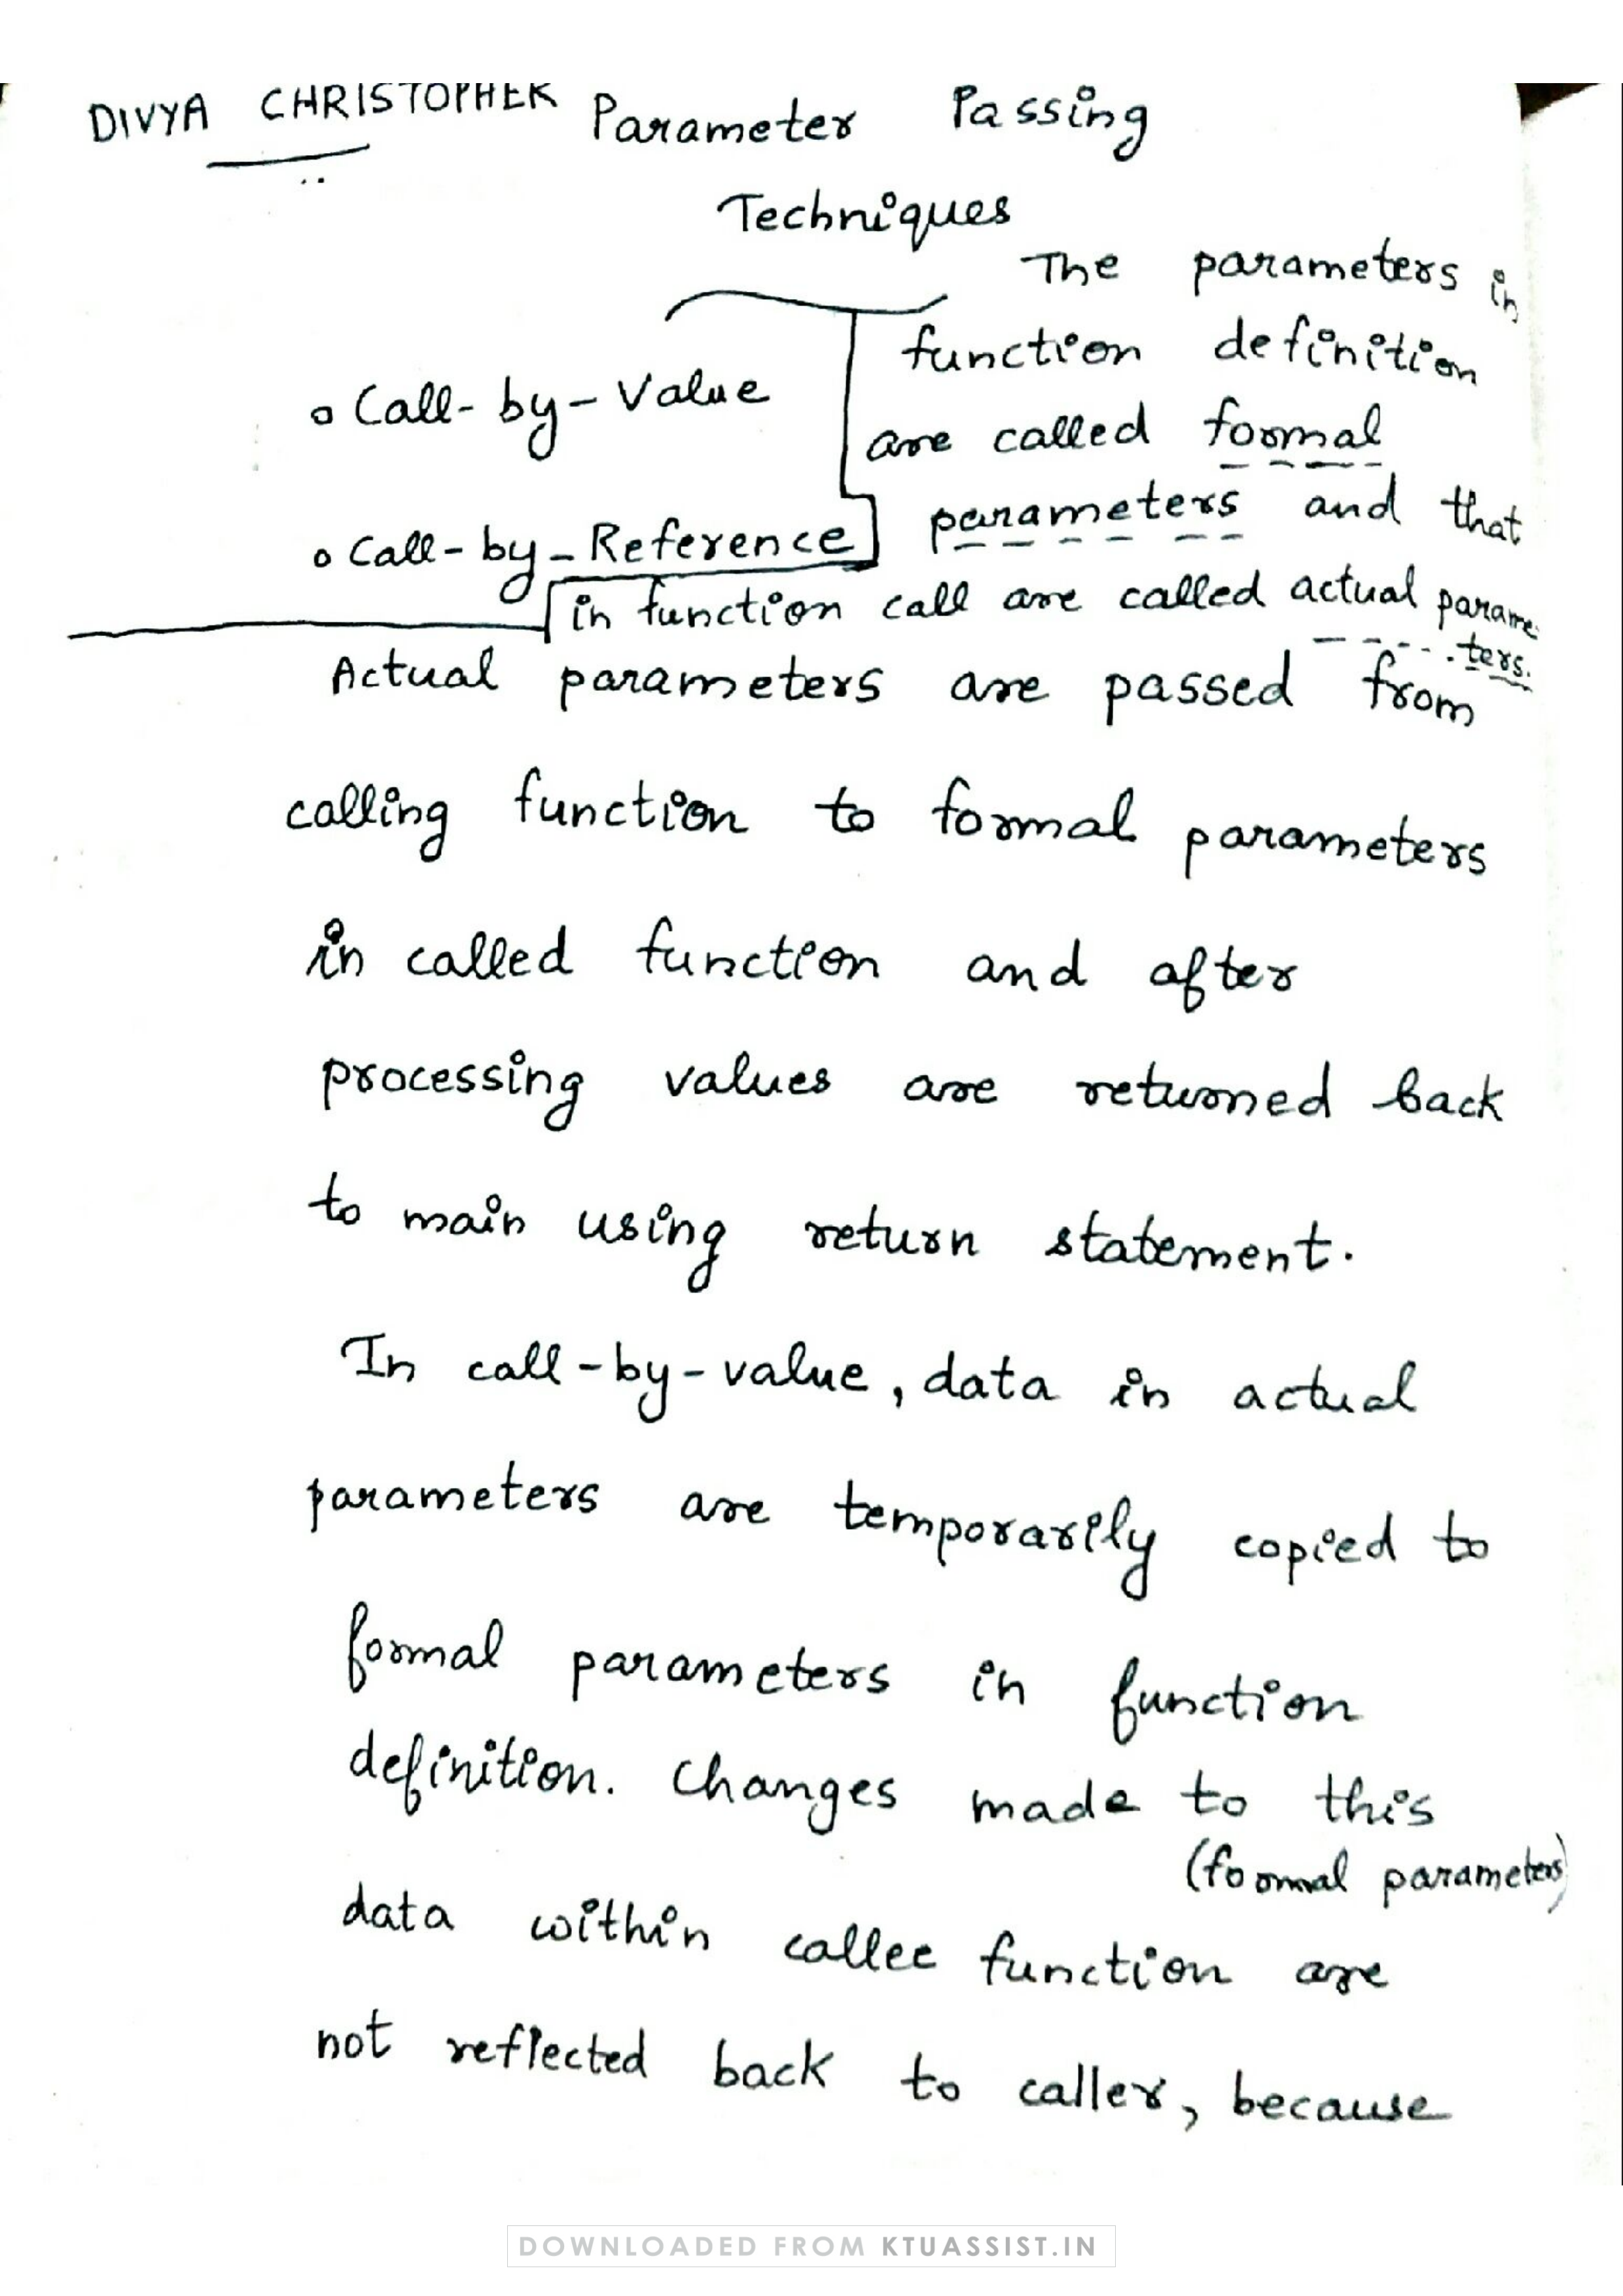 DIVYA CHRISTOPHER
Parameter Passing
Techniques
o Call-by-Value
o Call-by-Reference
The parameters in
function definition
are called formal
parameters and that
in function call are called actual parame
ters.
Actual parameters are passed from
calling function to formal parameters
in called function and after
processing values are returned back
to main using return statement.
In call-by-value, data in actual
parameters are temporarily copied to
formal parameters in function
definition. Changes made to this
(formal parameters)
data within callee function are
not reflected back to caller, because
DOWNLOADED FROM KTUASSIST.IN